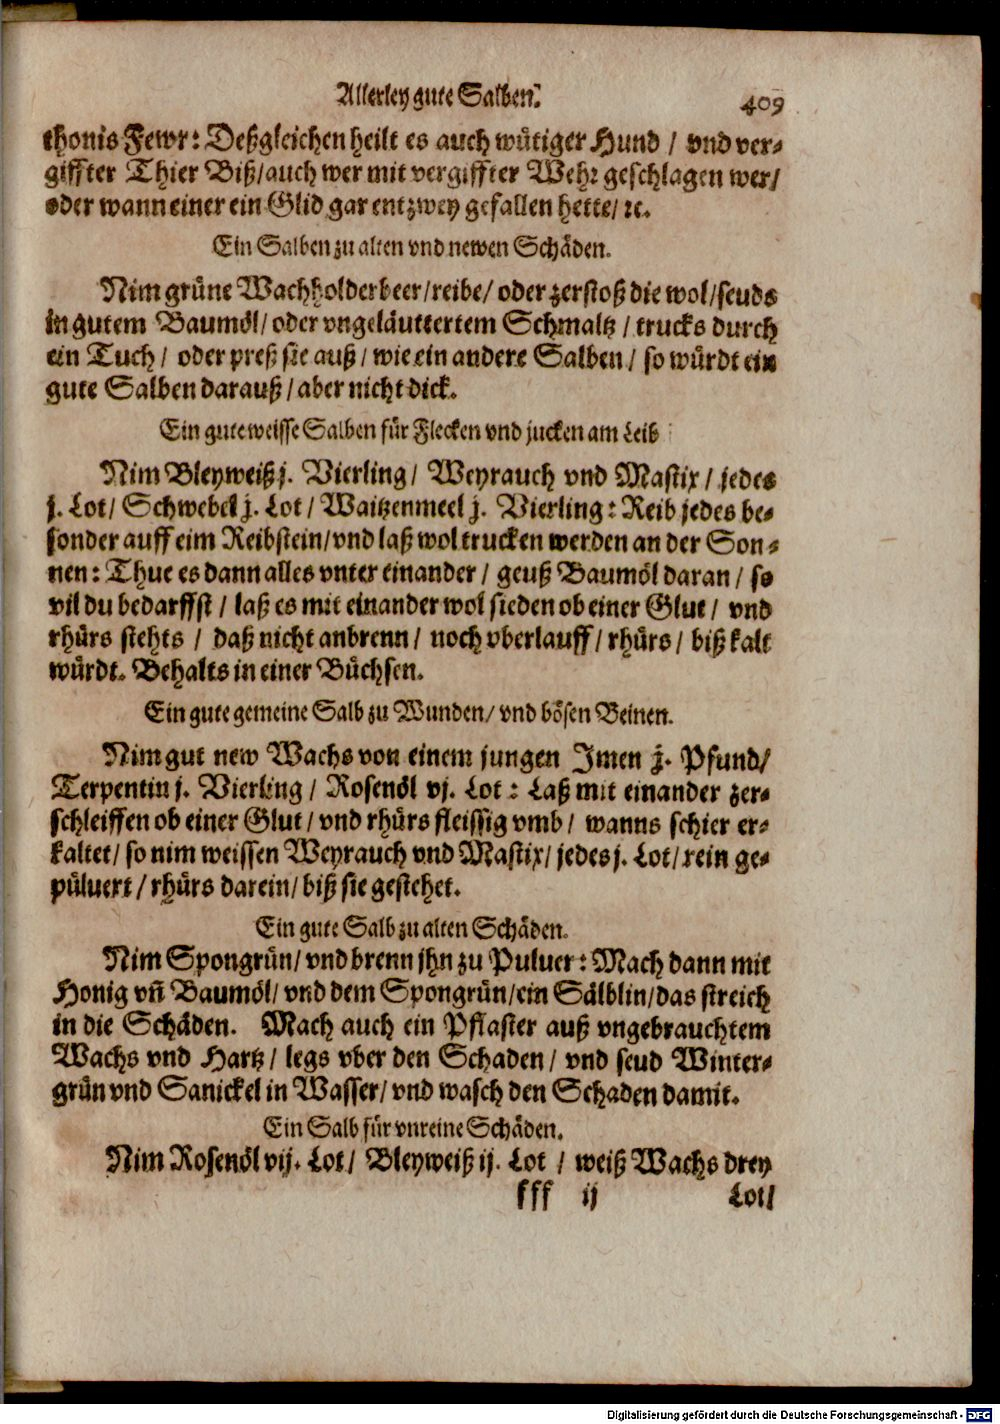 Allerley gute Salben. 409
thonis Fewr: Deßgleichen heilt es auch wütiger Hund / vnd ver-
giffter Thier Biß/auch wer mit vergiffter Wehr geschlagen wer/
oder wann einer ein Glid gar entzwey gefallen hette/ ꝛc.
Ein Salben zu alten vnd newen Schäden.
Nim grüne Wachholderbeer/reibe/ oder zerstoß die wol/seuds
in gutem Baumöl/ oder vngeläuttertem Schmaltz / trucks durch
ein Tuch / oder preß sie auß / wie ein andere Salben / so würdt ein
gute Salben darauß / aber nicht dick.
Ein gute weisse Salben für Flecken vnd jucken am Leib
Nim Bleyweiß j. Vierling/ Weyrauch vnd Mastix / jedes
j. Lot/ Schwebel j. Lot / Waitzenmeel j. Vierling: Reib jedes be-
sonder auff eim Reibstein/vnd laß wol trucken werden an der Son-
nen: Thue es dann alles vnter einander / geuß Baumöl daran / so
vil du bedarffst / laß es mit einander wol sieden ob einer Glut / vnd
rhürs stehts / daß nicht anbrenn / noch vberlauff/ rhürs / biß kalt
würdt. Behalts in einer Büchsen.
Ein gute gemeine Salb zu Wunden/ vnd bösen Beinen.
Nim gut new Wachs von einem jungen Imen j. Pfund/
Terpentin j. Vierling / Rosenöl vj. Lot: Laß mit einander zer-
schleiffen ob einer Glut / vnd rhürs fleissig vmb / wanns schier er-
kaltet/ so nim weissen Weyrauch vnd Mastix/ jedes j. Lot/ rein ge-
püluert / rhürs darein/ biß sie gestehet.
Ein gute Salb zu alten Schäden.
Nim Spongrün/ vnd brenn jhn zu Puluer: Mach dann mit
Honig vñ Baumöl/ vnd dem Spongrün/ein Sälblin/das streich
in die Schäden. Mach auch ein Pflaster auß vngebrauchtem
Wachs vnd Hartz / legs vber den Schaden / vnd seud Winter-
grün vnd Sanickel in Wasser/ vnd wasch den Schaden damit.
Ein Salb für vnreine Schäden.
Nim Rosenöl vij. Lot/ Bleyweiß ij. Lot / weiß Wachs drey
kkk ij Lot/
Digitalisierung gefördert durch die Deutsche Forschungsgemeinschaft - DFG